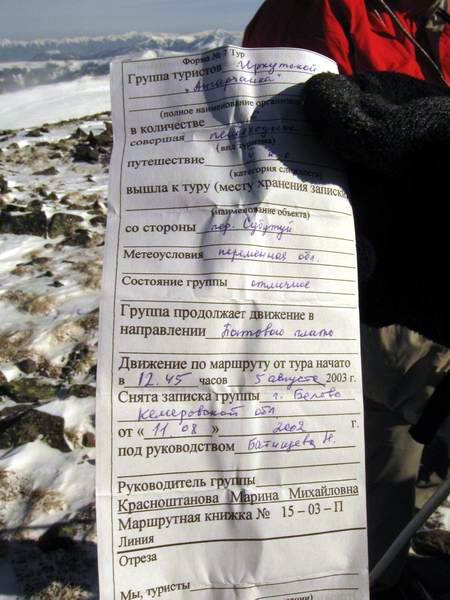 Форма № 7 Тур
Группа туристов Иркутской
"Ангарчанка"
(полное наименование организа
в количестве
совершая пешеходное
(вид туризма)
путешествие
(категория сложности
вышла к туру (месту хранения записки
(наименование объекта)
со стороны пер. Субутуй
Метеоусловия переменная обл.
Состояние группы отличное
Группа продолжает движение в
направлении плато
Движение по маршруту от тура начато
в 12.45 часов 5 августа 2003 г.
Снята записка группы г. Белово
Кемеровской обл
от « 11.08 » 2002 г.
под руководством Батищева Н.
Руководитель группы
Красноштанова Марина Михайловна
Маршрутная книжка № 15-03-П
Линия
Отреза
Мы, туристы